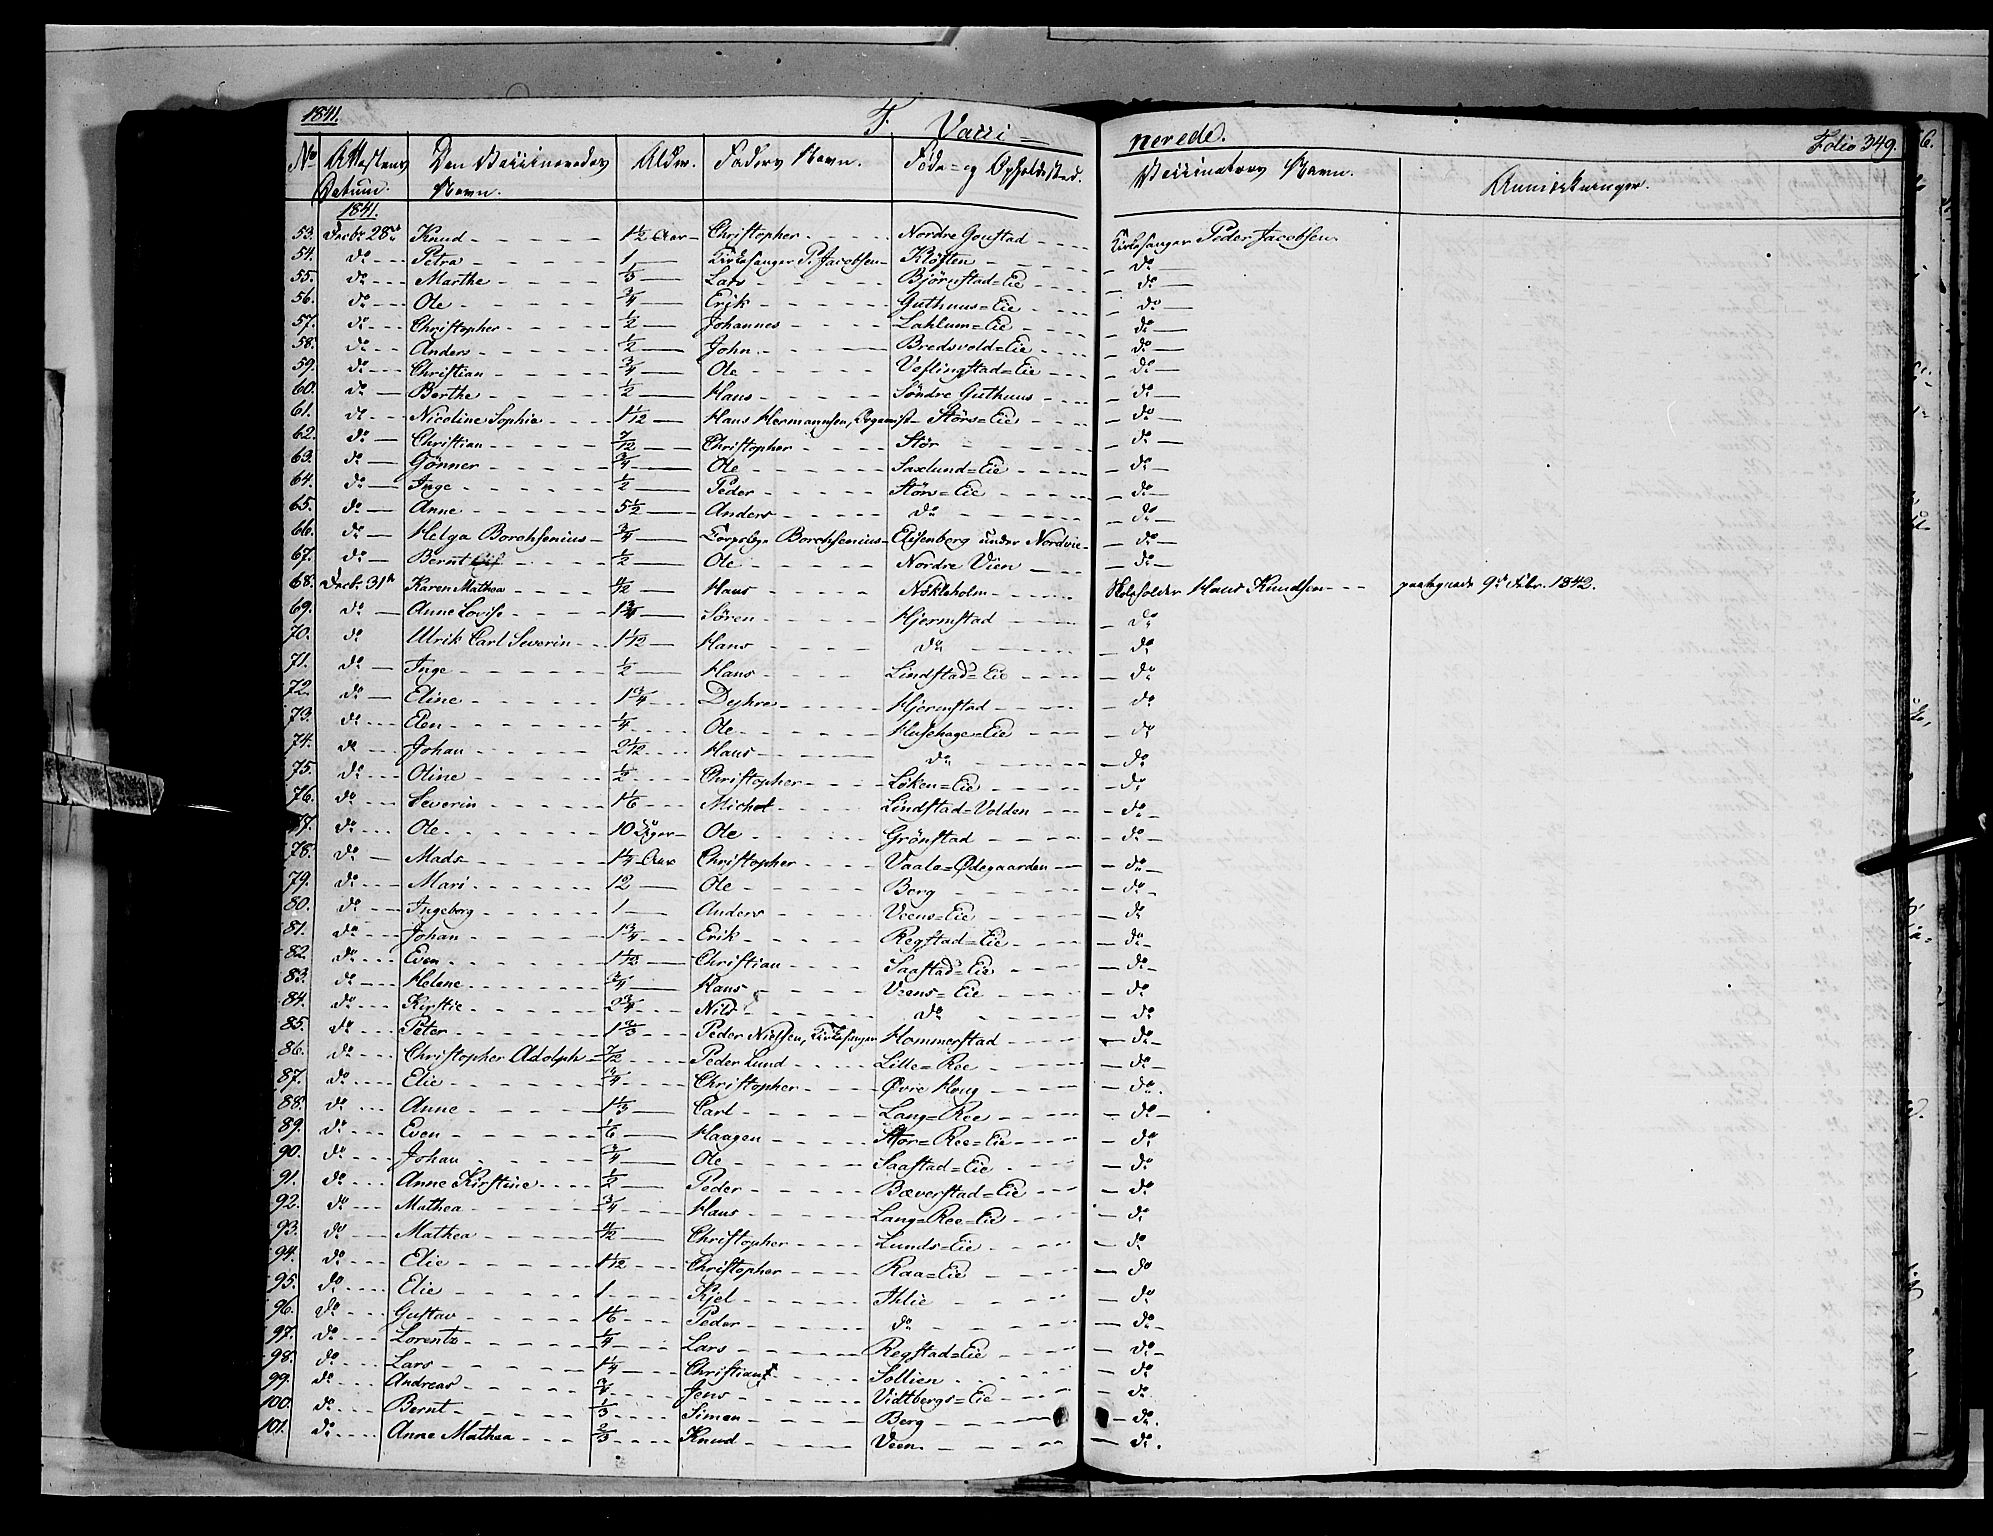 1841. F. Vacci= nerede. Folio 349.
No Attestens Den Vaccineredes Alder. Faders Navn. Føde- og Opholdssted. Vaccinators Navn. Anmærkninger.
Datum. Navn.
1841.
53. Decbr 28de Knud 1 1/2 Aar Christopher Nordre Goustad Kirkesanger Peder Jacobsen
54. do Petra 1 Kirkesanger P. Jacobsen Kløften do
55. do Marthe 1/3 Lars Bjørnstad=Eie do
56. do Ole 3/4 Erik Guthuus=Eie do
57. do Christopher 1/2 Johannes Lahlum=Eie do
58. do Anders 1/2 John Bredsvold=Eie do
59. do Christian 3/4 Ole Veflingstad=Eie do
60. do Berthe 1/2 Hans Søndre Guthuus do
61. do Nicoline Sophie 1 1/12 Hans Hermannsen, Organist Störs=Eie do
62. do Christian 7/12 Christopher Stör do
63. do Gönner 3/4 Ole Saxlund=Eie do
64. do Inge 1/2 Peder Störs=Eie do
65. do Anne 5 1/2 Anders do do
66. do Helga Borchsenius 3/4 Borchsenius Elisenberg under Nordvie do
67. do Bernt 1/2 Ole Nordre Vien do
68. Decbr 31te Karen Mathea 1/2 Hans Nökleholm Skoleholder Hans Knudsen paategnede 9de Febr. 1842.
69. do Anne Lovise 1 3/4 Sören Hjermstad do
70. do Ulrik Carl Severin 1 1/12 Hans do do
71. do Inge 1/2 Hans Lindstad=Eie do
72. do Eline 1 3/4 Dyhre Hjermstad do
73. do Elen 1/4 Ole Husehage=Eie do
74. do Johan 2 1/12 Hans do do
75. do Oline 1/2 Christopher Löken=Eie do
76. do Severin 1 1/6 Michel Lindstad=Volden do
77. do Ole 10 Uger Ole Grönstad do
78. do Mads 1 1/4 Aar Christopher Vaale=Ødegaarden do
79. do Mari 12 Ole Berg do
80. do Ingeborg 1 Anders Veens=Eie do
81. do Johan 1 3/4 Erik Regstad=Eie do
82. do Even 1 1/12 Christian Saastad=Eie do
83. do Helene 3/4 Hans Veens=Eie do
84. do Kirstie 2 3/4 Nils do do
85. do Peter 1 2/3 Peder Nielsen, Kirkesanger Hommerstad do
86. do Christopher Adolph 7/12 Peder Lund Lille=Ree do
87. do Elie 3/4 Christopher Øvre Houg do
88. do Anne 1 1/3 Carl Lang=Ree do
89. do Even 1/6 Haagen Stor=Ree=Eie do
90. do Johan 3/4 Ole Saastad=Eie do
91. do Anne Kirstine 1/2 Peder Bæverstad=Eie do
92. do Mathea 3/4 Hans Lang=Ree=Eie do
93. do Mathea 1/2 Christopher Lunds=Eie do
94. do Elie 1 1/12 Christopher Raa=Eie do
95. do Elie 1 Kjel Ihlie do
96. do Gustav 1 1/6 Peder do do
97. do Lorentz 1/4 Lars Regstad=Eie do
98. do Lars 1 1/4 Christian Sollien do
99. do Andreas 3/4 Jens Vidtbergs=Eie do
100. do Bernt 1/3 Simen Berg do
101. do Anne Mathea 2/3 Knud Veen do